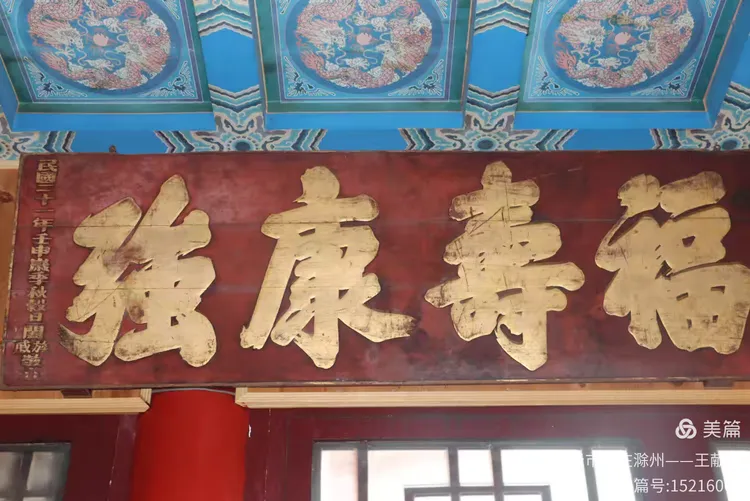 福壽康強
民國二十一年壬申歲季秋穀旦
美篇
滁州——王献
篇号:152160